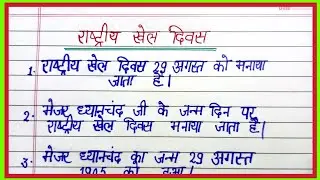 राष्ट्रीय खेल दिवस
1. राष्ट्रीय खेल दिवस 29 अगस्त को मनाया
जाता है।
2. मेजर ध्यानचंद जी के जन्म दिन पर
राष्ट्रीय खेल दिवस मनाया जाता है।
3. मेजर ध्यानचंद का जन्म 29 अगस्त
1905 को हुआ।